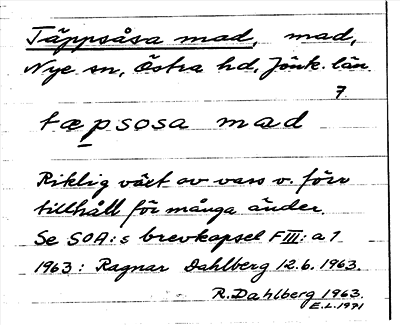 Täppsåsa mad, mad,
Nye sn, Östra hd, Jönk. län.
7
tæpsosa mad
Riklig växt av vass o. förr
tillhåll för många änder.
Se SOA:s brevkapsel FIII:a 1
1963: Ragnar Dahlberg 12.6.1963.
R. Dahlberg 1963.
E.L. 1971